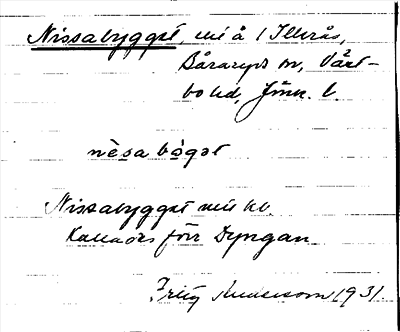 Nissabygget, mi å i Illerås,
Båraryds sn, Väst-
bo hd, Jönk. l.
nèsabögət
Nissabygget
Kallades förr Dyngan.
Fritz Andersson 1931.